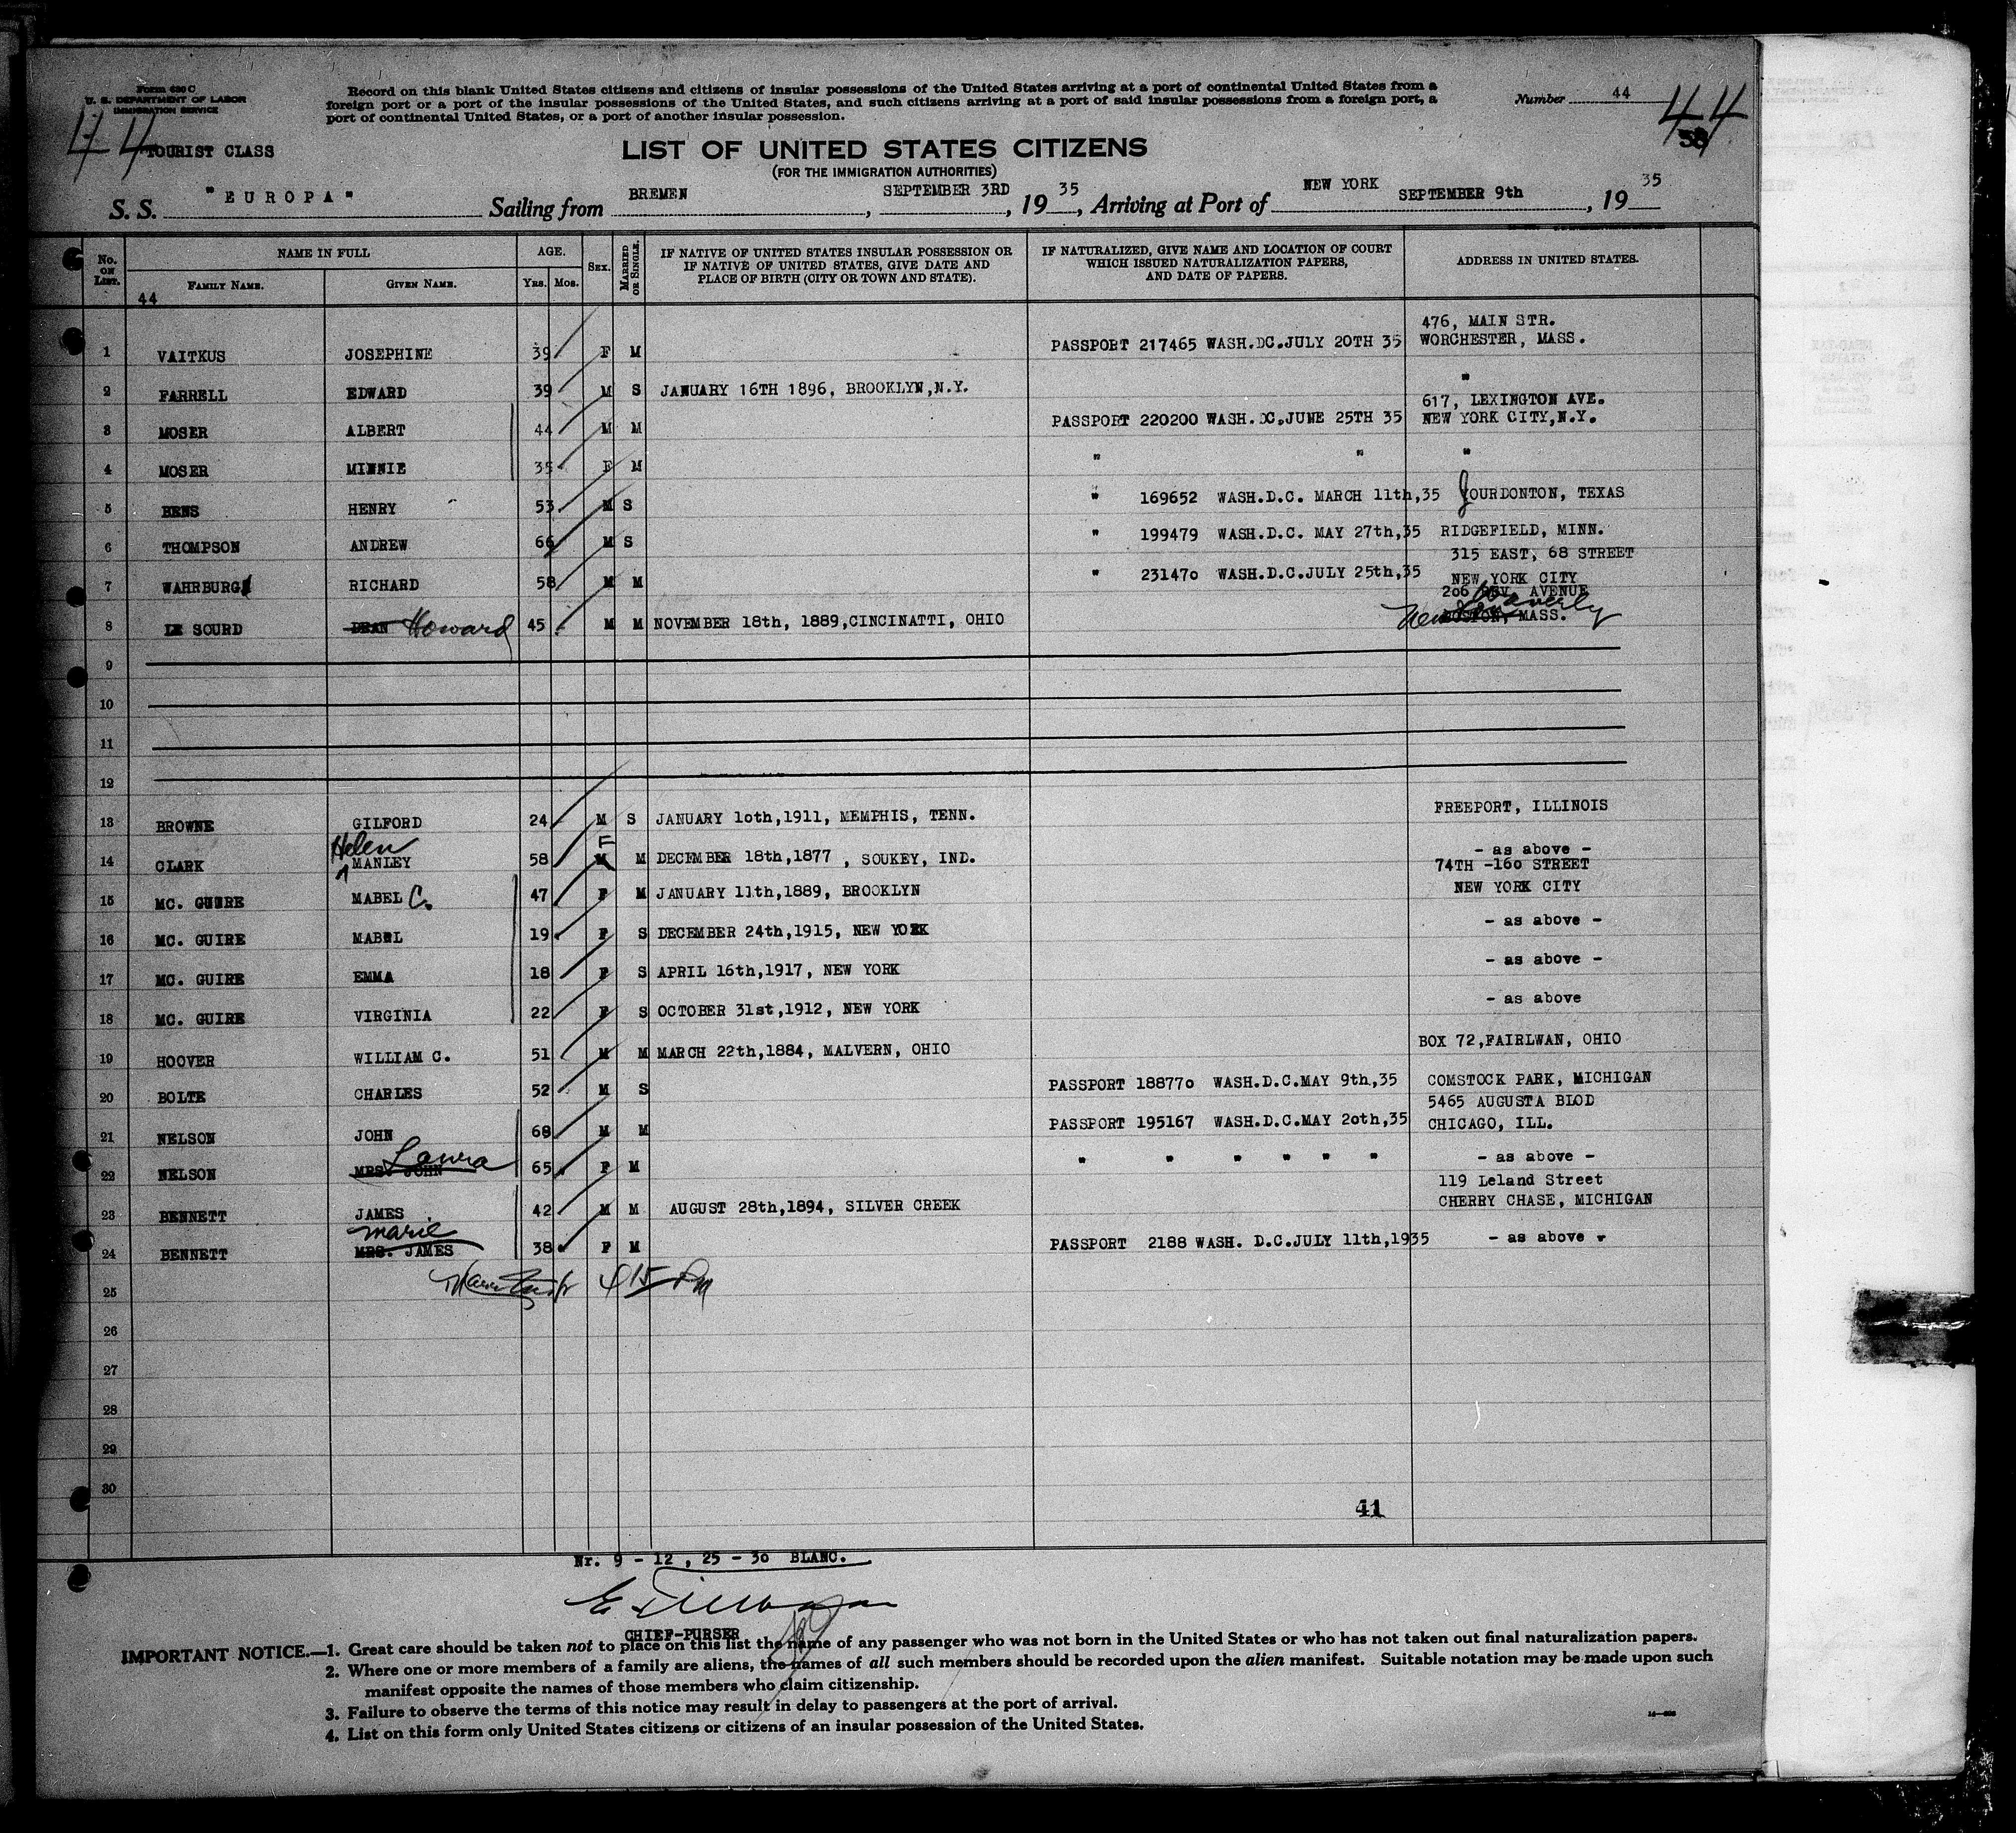 Form 630 C
U. S. DEPARTMENT OF LABOR
IMMIGRATION SERVICE
Record on this blank United States citizens and citizens of insular possessions of the United States arriving at a port of continental United States from a
foreign port or a port of the insular possessions of the United States, and such citizens arriving at a port of said insular possessions from a foreign port, a
port of continental United States, or a port of another insular possession.
Number 44
44
44
38
TOURIST CLASS
LIST OF UNITED STATES CITIZENS
(FOR THE IMMIGRATION AUTHORITIES)
S. S. "EUROPA" Sailing from BREMEN, SEPTEMBER 3RD, 1935, Arriving at Port of NEW YORK SEPTEMBER 9th, 1935
No. on List. NAME IN FULL AGE. Sex. Married or Single. IF NATIVE OF UNITED STATES INSULAR POSSESSION OR IF NATIVE OF UNITED STATES, GIVE DATE AND PLACE OF BIRTH (CITY OR TOWN AND STATE). IF NATURALIZED, GIVE NAME AND LOCATION OF COURT WHICH ISSUED NATURALIZATION PAPERS, AND DATE OF PAPERS. ADDRESS IN UNITED STATES.
Family Name. Given Name. Yrs. Mos.
44
476, MAIN STR.
1 VAITKUS JOSEPHINE 39 F M PASSPORT 217465 WASH.DC.JULY 20TH 35 WORCHESTER, MASS.
2 FARRELL EDWARD 39 M S JANUARY 16TH 1896, BROOKLYN,N.Y. "
617, LEXINGTON AVE.
3 MOSER ALBERT 44 M M PASSPORT 220200 WASH.DC.JUNE 25TH 35 NEW YORK CITY,N.Y.
4 MOSER MINNIE 35 F M " " "
5 BENS HENRY 53 M S " 169652 WASH.D.C. MARCH 11th,35 JOURDONTON, TEXAS
6 THOMPSON ANDREW 66 M S " 199479 WASH.D.C. MAY 27th,35 RIDGEFIELD, MINN.
315 EAST, 68 STREET
7 WAHRBURG RICHARD 58 M M " 23147o WASH.D.C.JULY 25th,35 NEW YORK CITY
2o6 Waverly AVENUE
8 LE SOURD DEAN Howard 45 M M NOVEMBER 18th, 1889,CINCINATTI, OHIO BOSTON, MASS.
9
10
11
12
13 BROWNE GILFORD 24 M S JANUARY 1oth,1911, MEMPHIS, TENN. FREEPORT, ILLINOIS
14 CLARK Helen MANLEY 58 M F M DECEMBER 18th,1877 , SOUKEY, IND. - as above -
74TH -16o STREET
15 MC. GUIRE MABEL C. 47 F M JANUARY 11th,1889, BROOKLYN NEW YORK CITY
16 MC. GUIRE MABEL 19 F S DECEMBER 24th,1915, NEW YORK - as above -
17 MC. GUIRE EMMA 18 F S APRIL 16th,1917, NEW YORK - as above -
18 MC. GUIRE VIRGINIA 22 F S OCTOBER 31st,1912, NEW YORK - as above
19 HOOVER WILLIAM C. 51 M M MARCH 22th,1884, MALVERN, OHIO BOX 72,FAIRLWAN, OHIO
20 BOLTE CHARLES 52 M S PASSPORT 18877o WASH.D.C.MAY 9th,35 COMSTOCK PARK, MICHIGAN
5465 AUGUSTA BLOD
21 NELSON JOHN 68 M M PASSPORT 195167 WASH.D.C.MAY 2oth,35 CHICAGO, ILL.
22 NELSON MRS. JOHN Laura 65 F M " " " " " " - as above -
119 Leland Street
23 BENNETT JAMES 42 M M AUGUST 28th,1894, SILVER CREEK CHERRY CHASE, MICHIGAN
24 BENNETT MRS. JAMES Marie 38 F M PASSPORT 2188 WASH. D.C.JULY 11th,1935 - as above -
25 4 15 PM
26
27
28
29
30
41
Nr. 9 - 12 , 25 - 3o BLANC.
CHIEF-PURSER
IMPORTANT NOTICE.—1. Great care should be taken not to place on this list the name of any passenger who was not born in the United States or who has not taken out final naturalization papers.
2. Where one or more members of a family are aliens, the names of all such members should be recorded upon the alien manifest. Suitable notation may be made upon such
manifest opposite the names of those members who claim citizenship.
3. Failure to observe the terms of this notice may result in delay to passengers at the port of arrival.
4. List on this form only United States citizens or citizens of an insular possession of the United States.